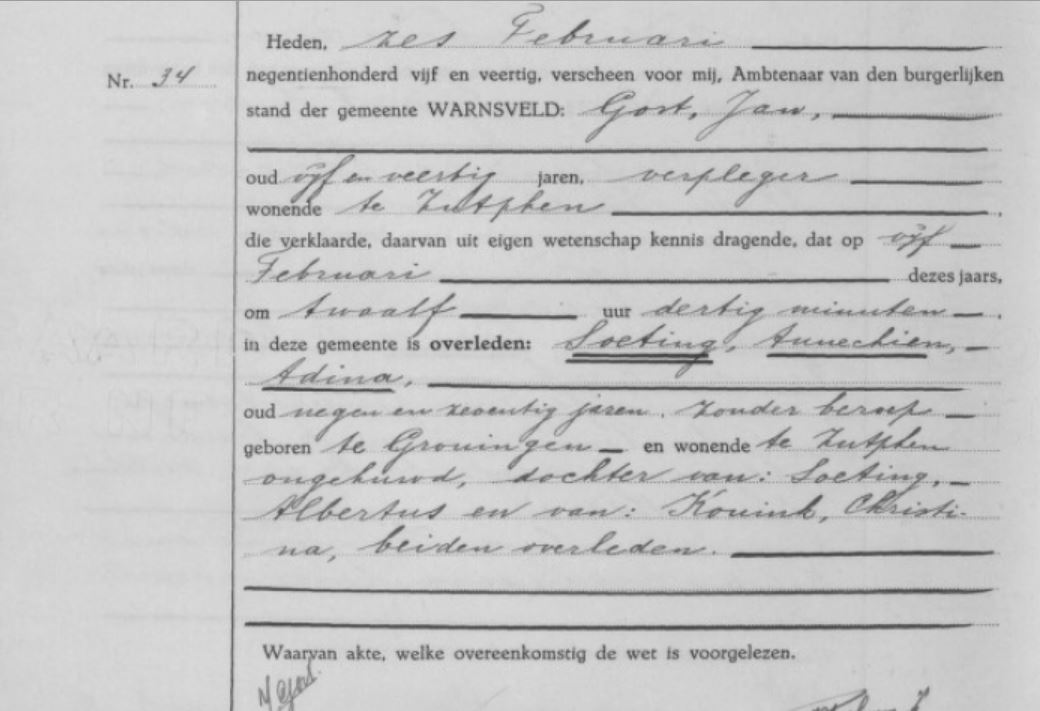 Heden, zes Februari
Nr. 34
negentienhonderd vijf en veertig, verscheen voor mij, Ambtenaar van den burgerlijken
stand der gemeente WARNSVELD: Gost, Jan,
oud vijf en veertig jaren, verpleger
wonende te Zutphen
die verklaarde, daarvan uit eigen wetenschap kennis dragende, dat op vijf
Februari dezes jaars,
om twaalf uur dertig minuten
in deze gemeente is overleden: Soeting, Annechien,
Adina,
oud negen en zeventig jaren, zonder beroep
geboren te Groningen en wonende te Zutphen
ongehuwd, dochter van: Soeting,
Albertus en van: Konink, Christi-
na, beiden overleden.
Waarvan akte, welke overeenkomstig de wet is voorgelezen.
J Gost.